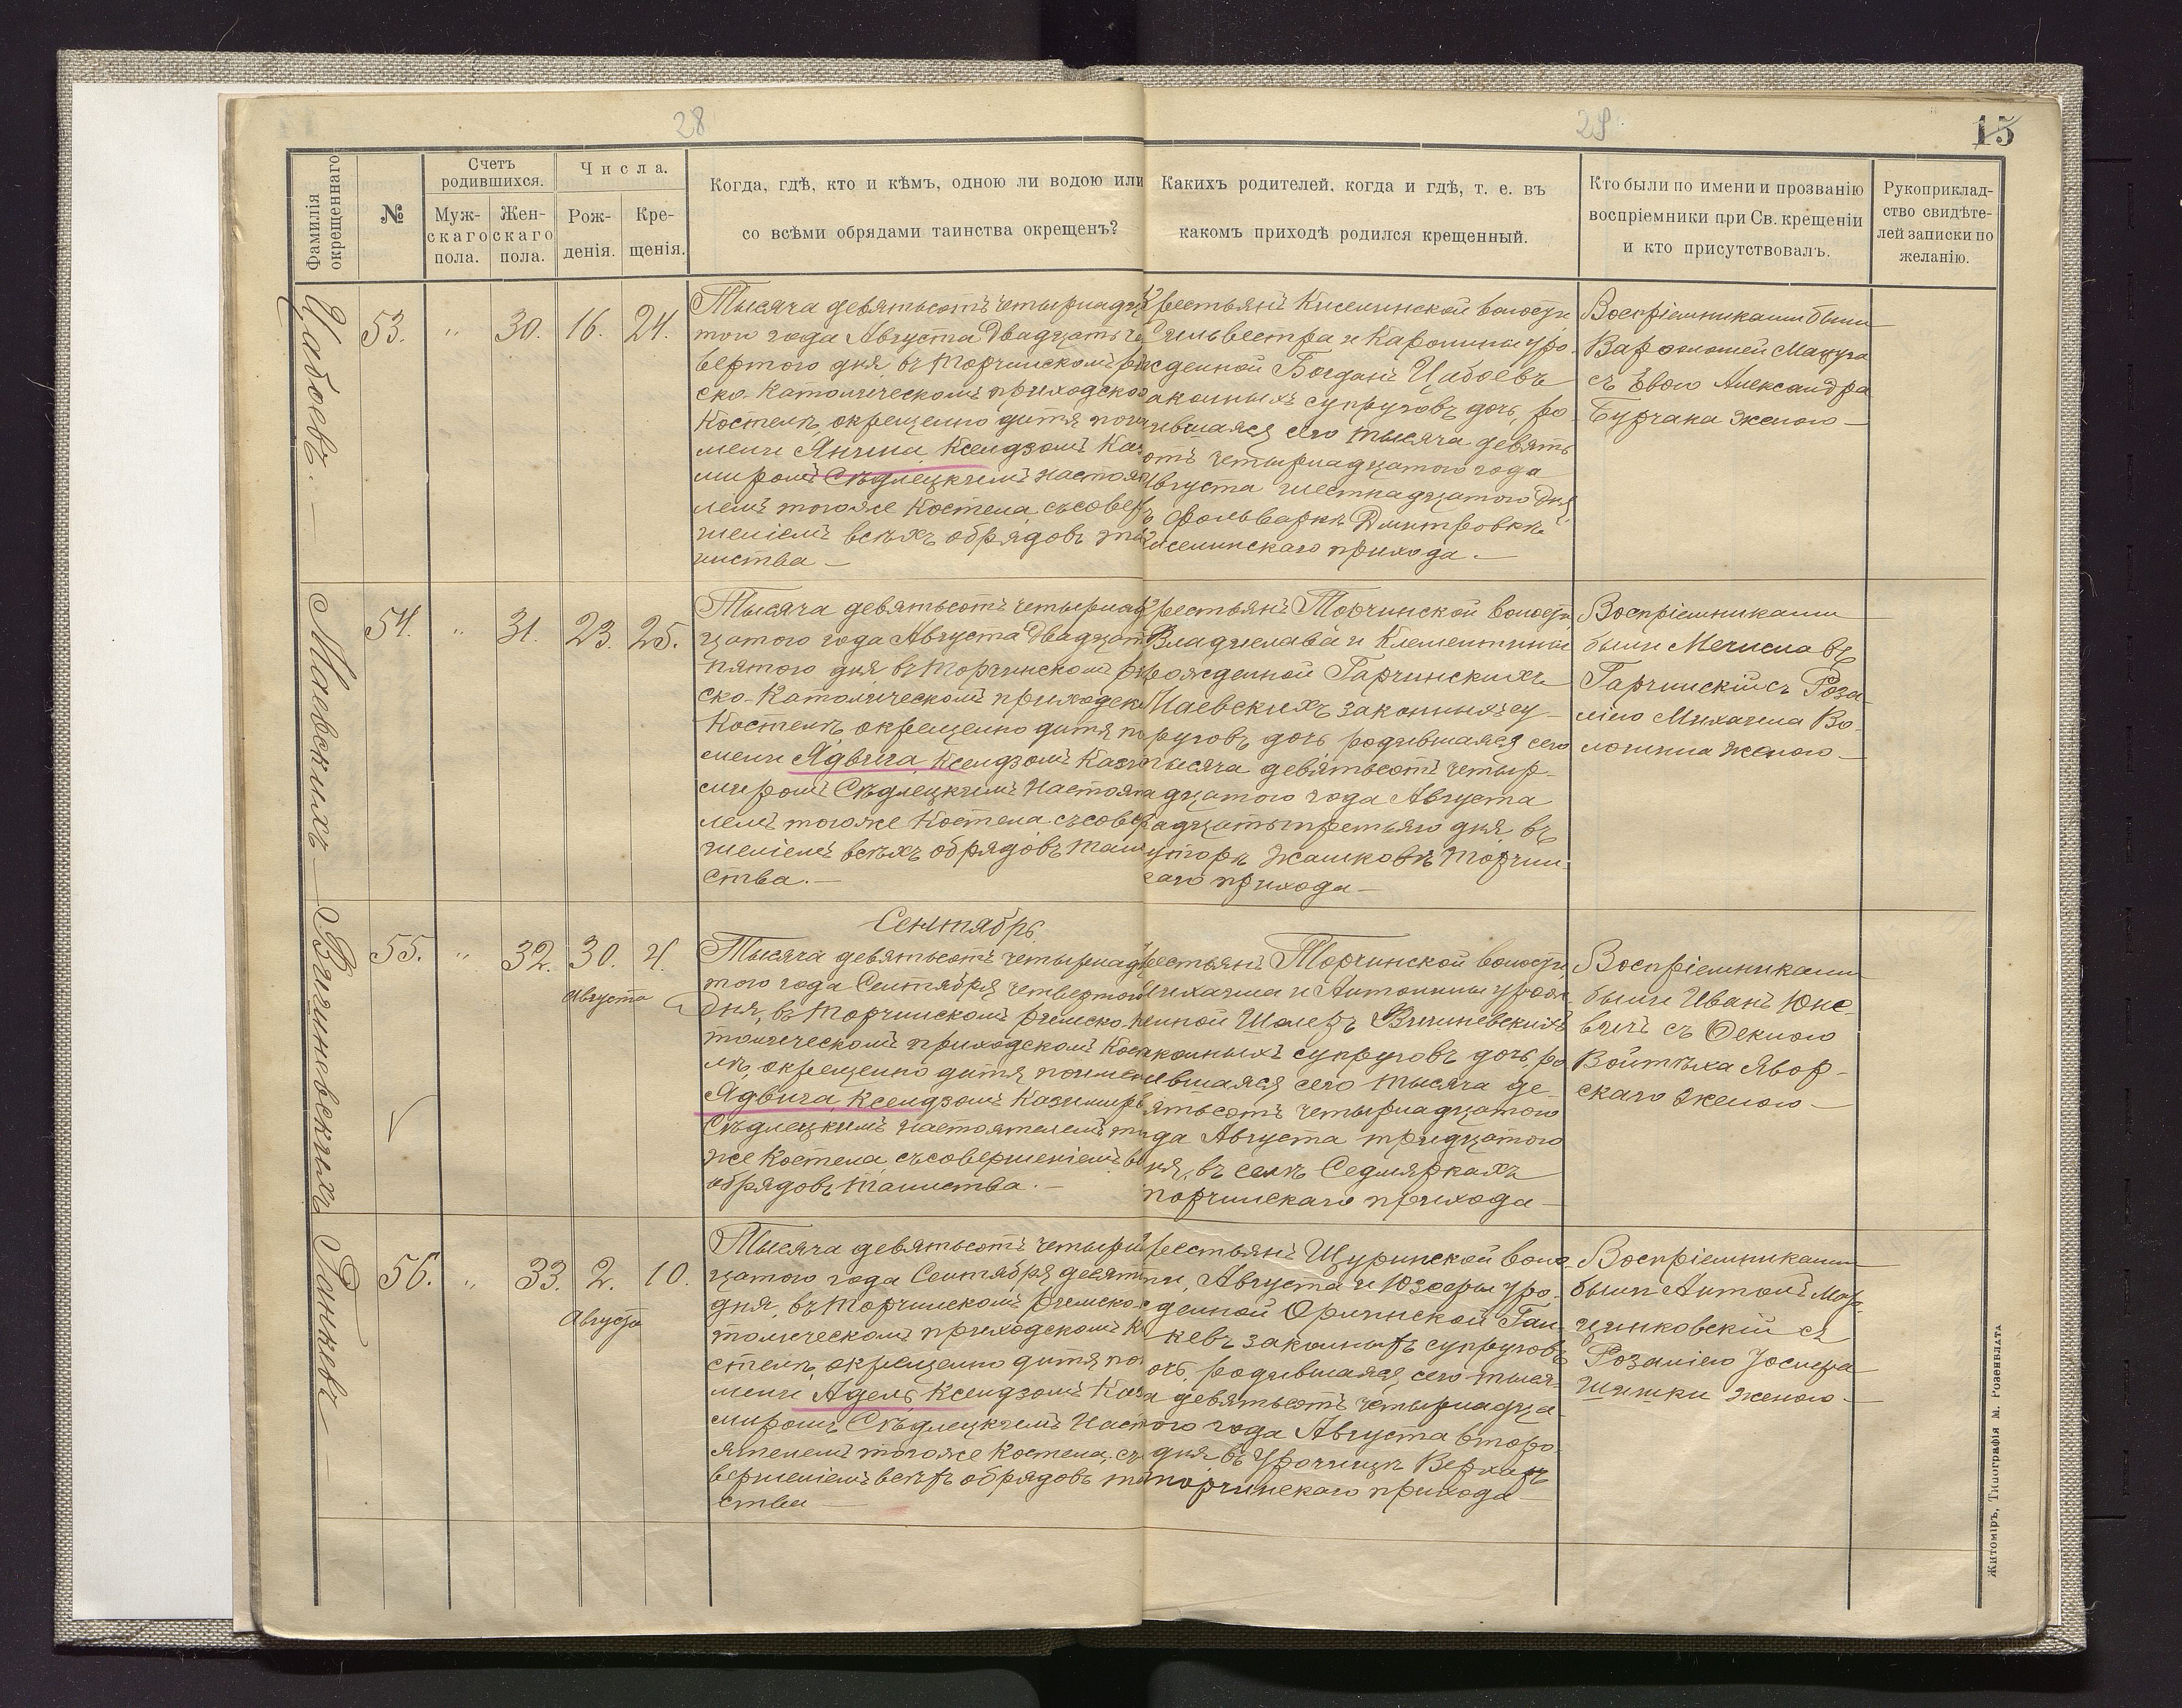 28
29
15
Фамилія окрещеннаго
№
Счетъ родившихся.
Муж-
скаго
пола.
Жен-
скаго
пола.
Числа.
Рож-
денія.
Кре-
щенія.
Когда, гдѣ, кто и кѣмъ, одною ли водою или
со всѣми обрядами таинства окрещенъ?
Какихъ родителей, когда и гдѣ, т. е. въ
какомъ приходѣ родился крещенный.
Кто были по имени и прозванію
воспріемники при Св. крещеніи
и кто присутствовалъ.
Рукоприклад-
ство свидѣте-
лей записки по
желанію.
Цабоевъ.
53. " 30. 16. 24.
Тысяча девятьсотъ четырнадца
того года Августа двадцать че
вертого дня, въ Торчинскомъ ри
ско-Католическомъ приходско
Костелѣ, окрещено дитя поим
мени Янина, Ксендзомъ Каз
миромъ Сѣдлецкимъ настоя
лемъ тогоже Костела, съ совер
шеніемъ всѣхъ обрядовъ та
инства —
рестьянъ Киселинской волости
Сильвестра и Каролины уро-
жденной Богданъ Цабоевъ
аконныхъ супруговъ дочь, ро-
ившаяся сего тысяча девять
отъ четырнадцатого года
Августа шестнадцатого дня
ъ Фольваркѣ Дмитровкѣ
Киселинскаго прихода. —
Воспріемниками были
Варфоломей Мазура
съ Евою Александра
Бурчака женою —
Маевскихъ
54. " 31. 23. 25.
Тысяча девятьсотъ четырнад
цатого года Августа двадцат
пятого дня въ Торчинскомъ ри
ско-Католическомъ приходск
Костелѣ, окрещено дитя по
мени Ядвига, Ксендзомъ Кази
миромъ Сѣдлецкимъ Настоя
лемъ тогоже Костела съ совер
шеніемъ всѣхъ обрядовъ таин
ства. —
рестьянъ Торчинской волости
Владислава и Клементины
рожденной Гарчинскихъ
Маевскихъ законныхъ су-
руговъ дочь, родившаяся сего
тысяча девятьсотъ четыр-
адцатого года Августа
адцатьтретьяго дня, въ
уторѣ Жашковкѣ Торчин-
каго прихода —
Воспріемниками
были Мечиславъ
Гарчинскій съ Роза-
ліею Михаила Во-
лошина женою —
Вишневскихъ
Сентябрь.
55. " 32. 30. 4.
Августа
Тысяча девятьсотъ четырнадц
того года Сентября четвертого
дня, въ Торчинскомъ римско-К
толическомъ приходскомъ Кост
лѣ, окрещено дитя поимен
Ядвига, Ксендзомъ Казимиро
Сѣдлецкимъ настоятелемъ то
же Костела, съ совершеніемъ в
обрядовъ таинства. —
естьянъ Торчинской волости,
Михаила и Антонины урож-
енной Шолецъ Вишневскихъ
аконныхъ супруговъ дочь, ро
ившаяся сего тысяча де-
вятьсотъ четырнадцатого
да Августа тридцатого
ня, въ селѣ Седмяркахъ
Торчинскаго прихода —
Воспріемниками
были Иванъ Юхе-
вичъ съ Феклою
Войтѣха Явор-
скаго женою —
Ганкевъ
56. " 33. 2. 10.
Августа
Тысяча девятьсотъ четырн
цатого года Сентября десят
дня, въ Торчинскомъ римско-
толическомъ приходскомъ К
стелѣ, окрещено дитя по
мени Адель, Ксендзомъ Каз
миромъ Сѣдлецкимъ Наст
ятелемъ тогоже Костела, съ
вершеніемъ всѣхъ обрядовъ та
ства —
рестьянъ Щуринской воло-
ти, Августа и Юзефы уро-
денной Оринской Ган-
кевъ законныхъ супруговъ
очь, родившаяся, сего тыся-
а девятьсотъ четырнадца-
ого года Августа второ-
дня въ Урочищѣ Верхахъ
Торчинскаго прихода —
Воспріемниками
были Антонъ Мар-
цинковскій съ
Розаліею Іосифа
Шишки женою —
Житоміръ, Типографія М. Розенблата